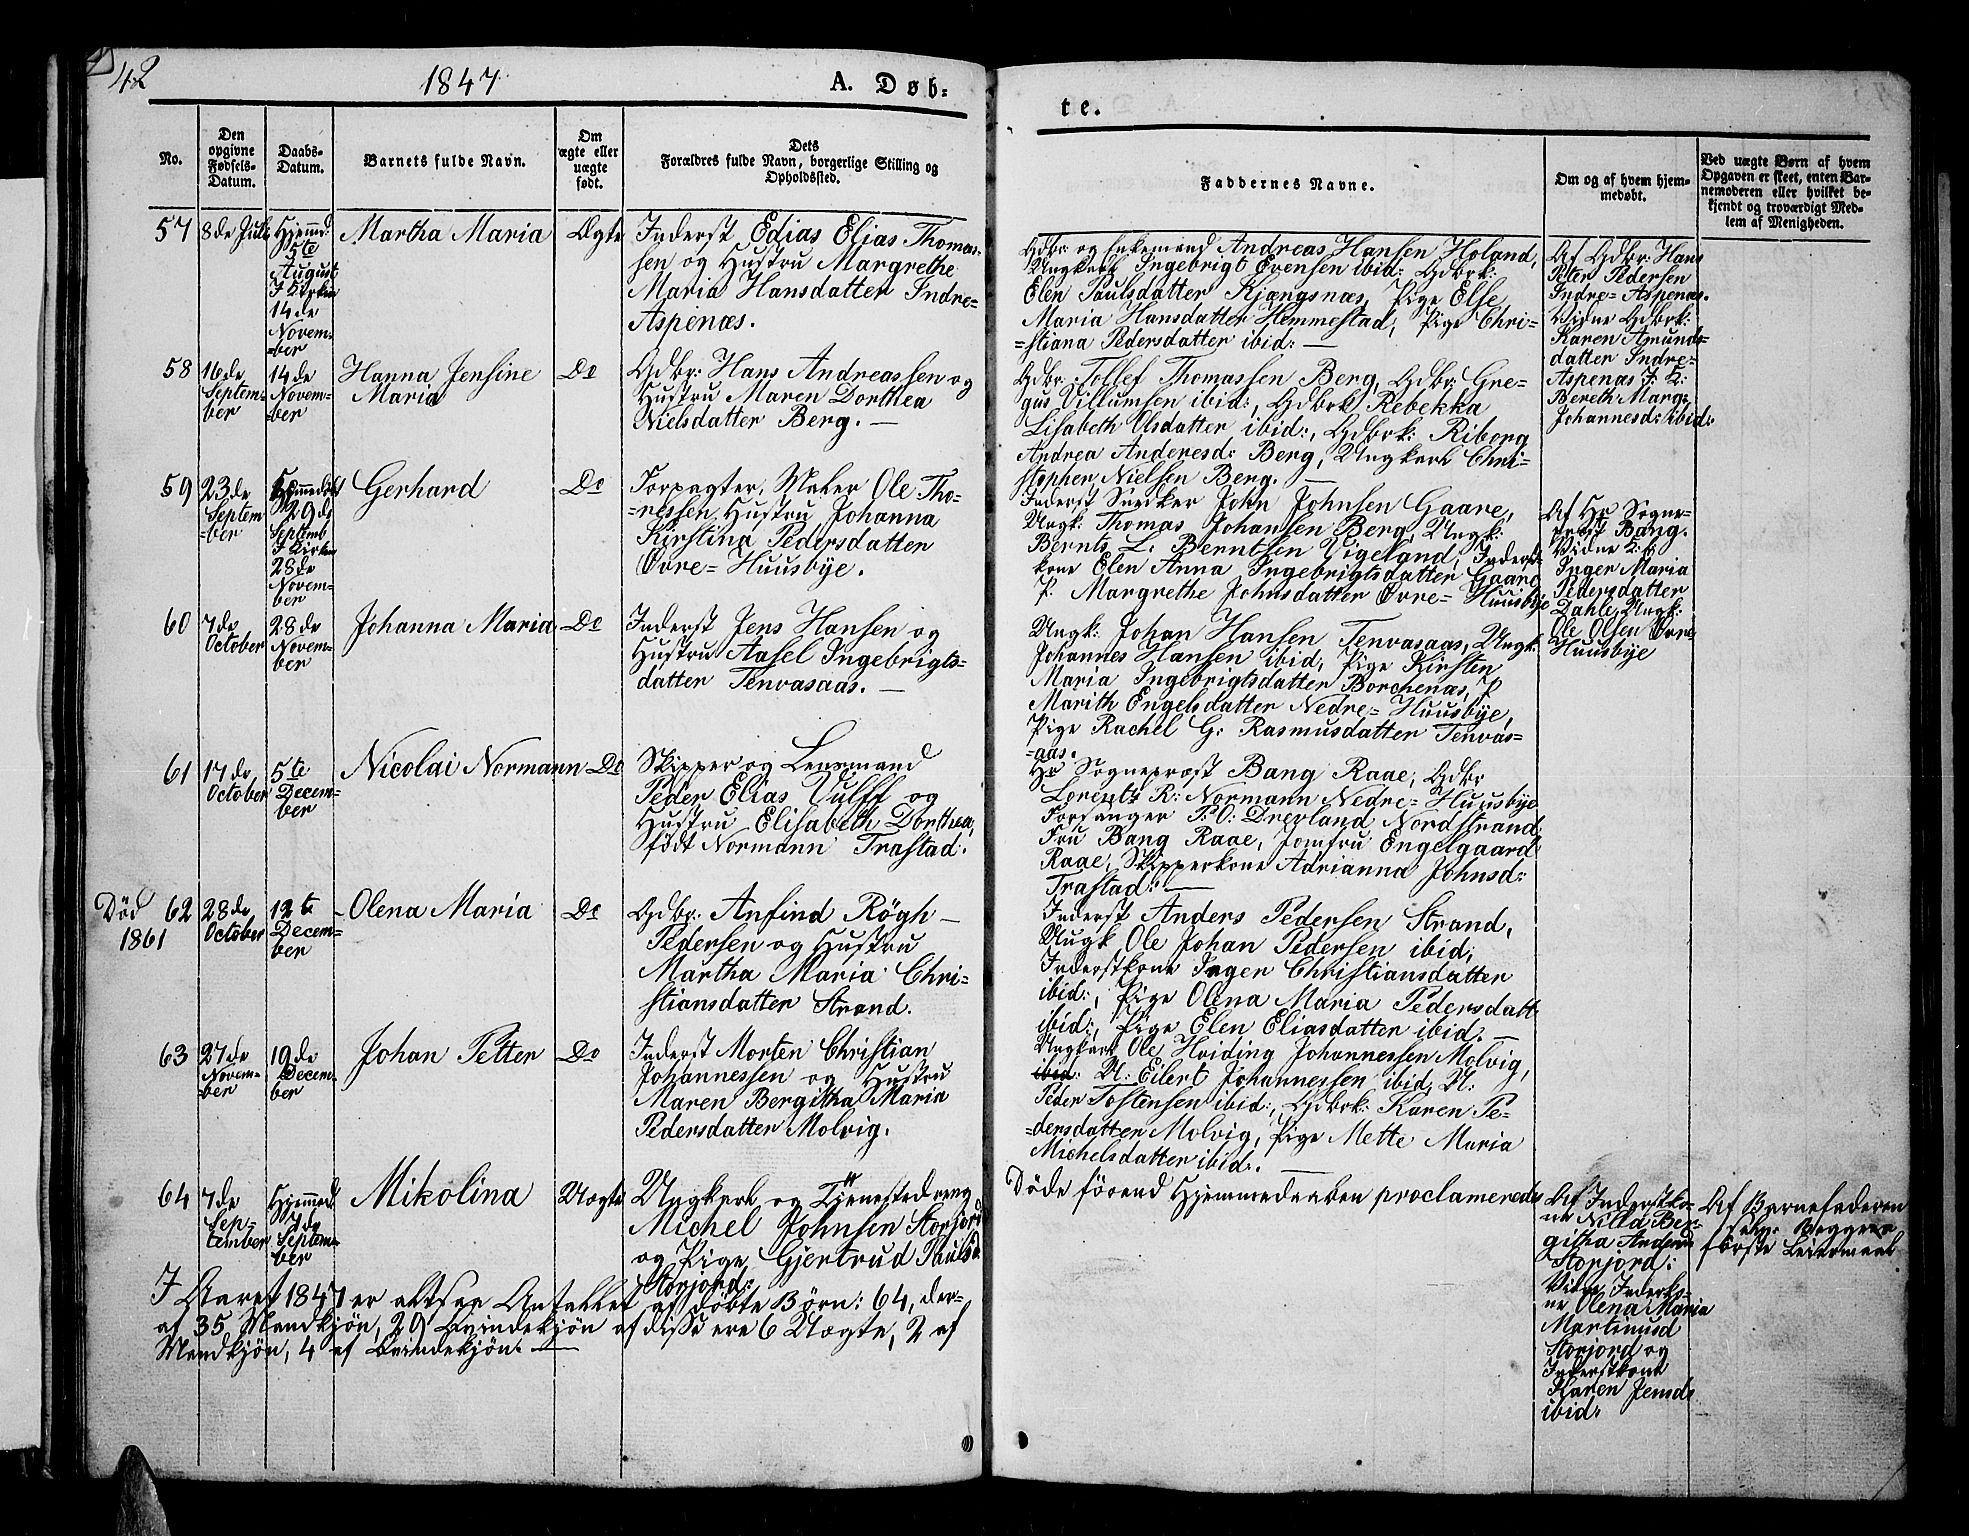 42
1847
A. Døb-
te.
No.
Den
opgivne
Fødsels-
Datum.
Daabs-
Datum.
Barnets fulde Navn.
Om
ægte eller
uægte
født.
Dets
Forældres fulde Navn, borgerlige Stilling og
Opholdssted.
Faddernes Navne.
Om og af hvem hjem-
medøbt.
Ved uægte Børn af hvem
Opgaven er skeet, enten Bar-
nemoderen eller hvilket be-
kjendt og troværdigt Med-
lem af Menigheden.
57
8de Juli
Hjemmd
5te
August
I Kirken
14de
Novem-
=ber
Martha Maria
Ægte
Inderst Edias Elias Thomas-
sen og Hustru Margrethe
Maria Hansdatter Indre=
Aspenæs.
Gdbr: og Enkemand Andreas Hansen Holand,
Ungkarl Ingebrigt Evensen ibid: Gdbrk:
Elen Paulsdatter Kjængsnæs, Pige Else
Maria Hansdatter Hemmestad, Pige Chri=
=stiana Pedersdatter ibid: —
Af Gdbr: Hans
Peter Pedersen
Indre=Aspenæs.
Vidne Gdbrk:
Karen Amunds-
datter Indre=
Aspenæs I: K:
Bereth Marg:
Johannesd: ibid:
58
16de
Septem-
ber
14de
Novem-
ber
Hanna Jensine
Maria
Do
Gdbr: Hans Andreassen og
Hustru Maren Dorthea
Nielsdatter Berg. —
Gdbr: Tollef Thomassen Berg, Gdbr: Gre-
gus Villumsen ibid:, Gdbrk: Rebekka
Lisabeth Olsdatter ibid:, Gdbrk: Riborg
Andrea Anderesd: Berg, Ungkarl Chri-
stopher Nielsen Berg. —
59
23de
Septem
=ber
Hjemmedøbt
29de
Septemb
I Kirken
28de
Novem-
ber
Gerhard
Do
Forpagter, Maler Ole Tho=
=nessen, Hustru Johanna
Kirstina Pedersdatter
Øvre=Huusbye.
Inderst Snedker John Johnsen Gaare,
Ungk: Thomas Johansen Berg, Ungk:
Bernts L. Berntsen Vigeland, Inderst-
kone Elen Anna Ingebrigtsdatter Gaare
P. Margrethe Johnsdatter Øvre=Huusbye
Af Hr Sogne-
præst Bang.
Vidne K:
Inger Maria
Pedersdatter
Dahle, Ungk:
Ole Olsen Øvre
Huusbye
60
7de
October
28de
Novem-
ber
Johanna Maria
Do
Inderst Jens Hansen og
Hustru Aasel Ingebrigts-
datter Tenvasaas. —
Ungk: Johan Hansen Tenvasaas, Ungk:
Johannes Hansen ibid, Pige Kirsten
Maria Ingebrigtsdatter Borchenæs, P
Marith Engelsdatter Nedre=Huusbye,
Pige Rachel G: Rasmusdatter Tenvas-
=aas.
61
17de
October
5te
Decem-
ber
Nicolai Normann
Do
Skipper og Lensmand
Peder Elias Vulff og
Hustru Elisabeth Dorthea,
født Normann Trastad.
Hr Sognepræst Bang Raae, Gdbr
Lorentz R: Normann Nedre=Huusbye
Forsanger P. O: Dreyland Nordstrand,
Fru Bang Raae, Jomfru Engelgaard
Raae, Skipperkone Adrianna Johnsd:
Trastad: —
Død
1861
62
28de
October
12te
Decem=
ber
Olena Maria
Do
Gdbr: Anfind Rögh—
Pedersen og Hustru
Martha Maria Chri=
stiansdatter Strand.
Inderst Anders Pedersen Strand,
Ungk Ole Johan Pedersen ibid;
Inderstkone Inger Christiansdatter
ibid:, Pige Olena Maria Pedersdatt
ibid:, Pige Elen Eliasdatter ibid. —
63
27de
Novem-
ber
19de
Decem-
ber
Johan Petter
Do
Inderst Morten Christian
Johannessen og Hustru
Maren Bergitha Maria
Pedersdatter Molvig.
Ungkarl Ole Hviding Johannessen Molvig,
ibid: U: Eilert Johannessen ibid, U:
Peder Tostensen ibid:, Gdbrk: Karen Pe-
=dersdatter Molvig, Pige Mette Maria
Michelsdatter ibid:. —
64
7de
Sep-
tember
Hjemmed
7de
Septem-
ber
Mikolina
Uægte
Ungkarl og Tjenestedreng
Michel Johnsen Storjord
og Pige Gjertrud Paulsd
Storjord:
Døde förend Hjemmedaaben proclameredes
Af Inderstko-
ne Nilla Ber-
githa Andersd
Storjord:
Vidne Inderstko-
ne Olena Maria
Martinusd
Storjord og
Inderstkone
Karen Jensd:
ibid:
Af Barnefaderen
selv. Begges
første Leiermaal
I Aaret 1847 er altsaa Antallet af døbte Børn: 64, der-
af 35 Mandkjøn, 29 Qvindekjøn af disse ere 6 Uægte, 2 af
Mandkjøn, 4 af Qvindekjøn. —